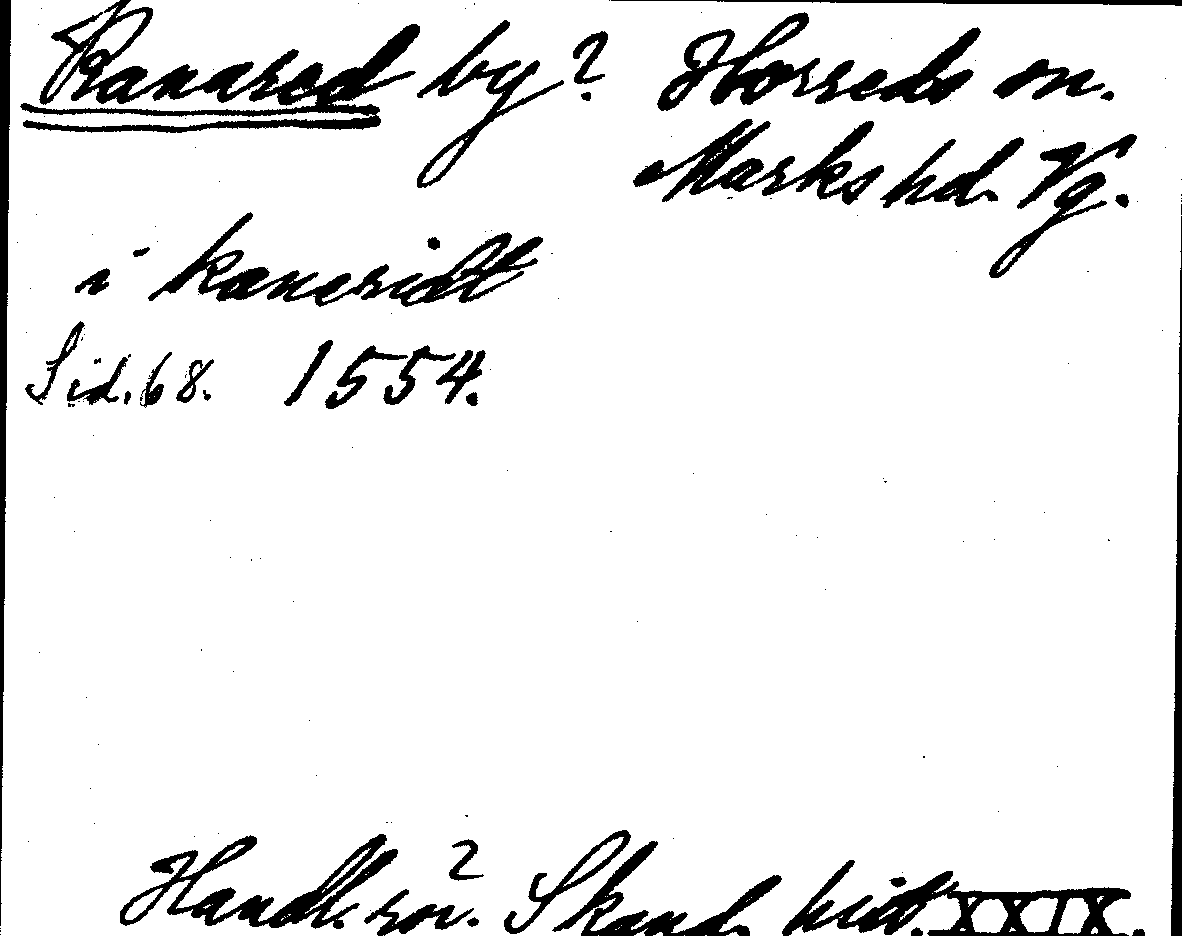 Ranared by? Horreds sn.
Marks hd. Vg.
i kaneridt
Sid. 68. 1554.
Handl. rör. Skand. hist. XXIX.